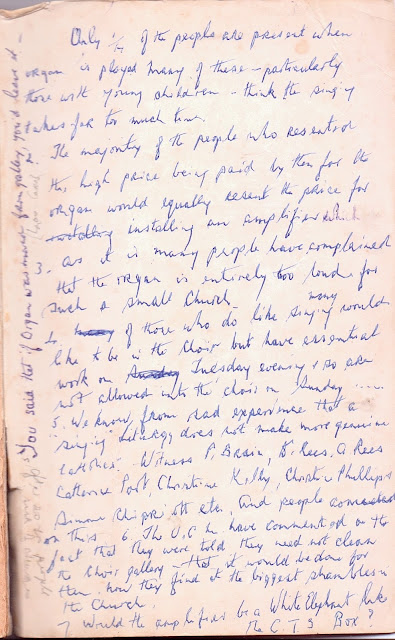 Only 1/7 of the people are present when
organ is played many of these - particularly
those with young children - think the singing
takes far too much time.
The majority of the people who resented
the high price being paid by them for the
organ would equally resent the price for
installing an amplifier which
as it is many people have complained
that the organ is entirely too loud for
such a small Church -
many
of those who do like singing would
like to be in the Choir but have essential
work on Tuesday evening & so are
not allowed into the choir on Sunday .....
5. We know, from sad experience that a
singing liturgy does not make more genuine
Catholics. Witness P. Brain, D. Rees, A Rees
Catherine Port, Christine Kelhy, Christine Phillips
Simone etc etc. and people
on this 6. The U.C.M. have commented on the
fact that they were told they need not clean
the Choir gallery - that it would be done for
them. Now they find it the biggest shambles in
the Church.
7 Would the amplifier be a White Elephant like
the C.T.S Box?
You said that if Organ was moved from gallery, you'd leave it -